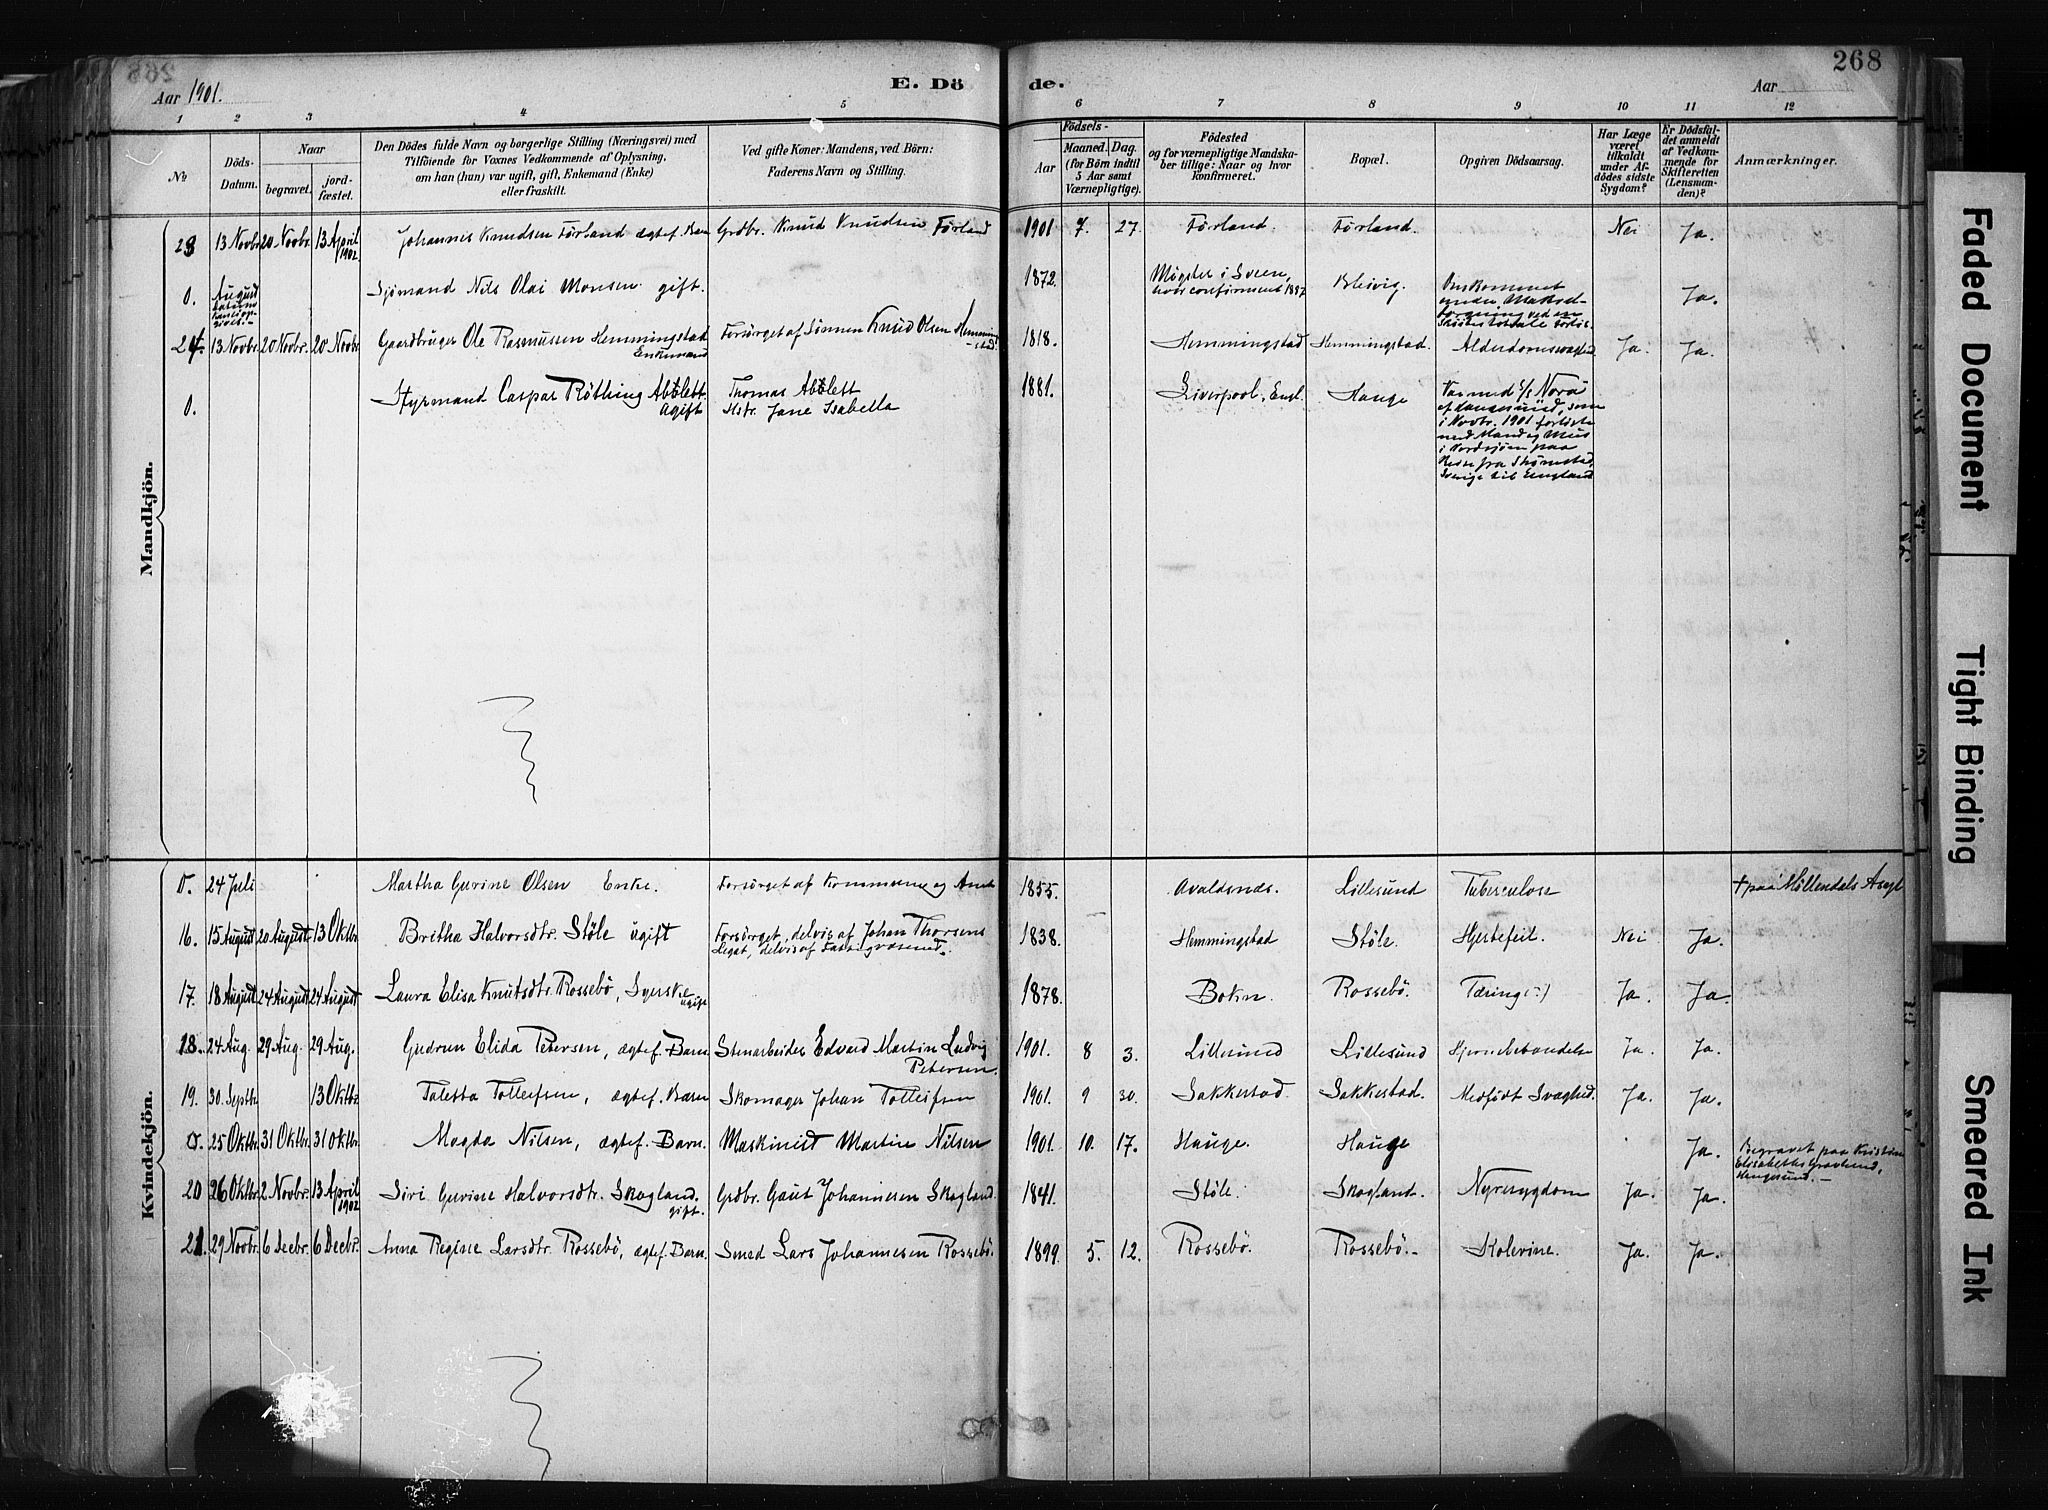 268
Aar 1901.
E. Dö
de.
Aar
1 2 3 4 5 6 7 8 9 10 11 12
No
Döds-
Datum.
Naar
begravet.
jord-
fæstet.
Den Dödes fulde Navn og borgerlige Stilling (Næringsvei) med
Tilföiende for Voxnes Vedkommende af Oplysning,
om han (hun) var ugift, gift, Enkemand (Enke)
eller fraskilt.
Ved gifte Koner: Mandens, ved Börn:
Faderens Navn og Stilling.
Födsels-
Aar
Maaned.
Dag.
(for Börn indtil
5 Aar samt
Værnepligtige).
Födested
og for værnepligtige Mandska-
ber tillige: Naar og hvor
konfirmeret.
Bopæl.
Opgiven Dödsaarsag.
Har Læge
været
tilkaldt
under Af-
dödes sidste
Sygdom?
Er Dödsfal-
det anmeldt
af Vedkom-
mende for
Skifteretten
(Lensman-
den)?
Anmærkninger.
Mandkjön.
23 13 Novbr. 20 Novbr. 13 April 1902 Johannes Knudsen Förland ægtef. Barn Grdbr. Knud Knudsen Förland 1901 7. 27. Förland. Förland. Nei Ja.
0. August Sjömand Nils Olai Monsen gift. 1872. Møgster i Sveen, hvor confirmeret 1887 Bleivig. Omkommet under Ja.
24. 13 Novbr. 20 Novbr. 20 Novbr. Gaardbruger Ole Rasmussen Hemmingstad Enkemand Forsörget af Sönnen Knud Olsen Hemmingstad. 1818. Hemmingstad Hemmingstad. Alderdomssvaghed Ja. Ja.
0. Styrmand Caspar Röthing Abblett. ugift Thomas Abblett Hstr. Jane Isabella 1881. Liverpool, Engl. Hauge Var med S/S Nora
af Haugesund, som
i Novbr. 1901 forliste
med Mand og Mus
i Nordsjöen paa
Reise fra Strömstad,
Sverige til England
Kvindekjön.
0. 24 Juli Martha Gurine Olsen Enke. Forsörget af Kommunen og Amt 1855. Avaldsnæs. Lillesund Tuberculose † paa Möllendals Asyl
16. 15 August 20 August. 13 Oktbr. Britha Halvorsdtr. Stöle ugift Forsörget, delvis af Johan Thorsens
Legat, delvis af Fattigvæsenet. 1838. Hemmingstad Stöle. Hjertefeil. Nei Ja.
17. 18 August 24 August 24 August Laura Elisa Knutsdtr. Rossebö, Syerske ugift 1878. Bokn. Rossebö. Tæring(?) Ja. Ja.
18. 24 Aug. 29 Aug. 29 Aug. Gudrun Elida Petersen, ægtef. Barn. Stenarbeider Edvard Martin Ludvig
Petersen. 1901. 8 3. Lillesund Lillesund Hjernebetændelse Ja. Ja.
19. 30. Septbr. 13 Oktbr. Taletta Tolleifsen, ægtef. Barn Skomager Johan Tolleifsen 1901. 9 30. Sakkestad. Sakkestad. Medfödt Svaghed. Ja. Ja.
0. 25 Oktbr. 31 Oktbr. 31 Oktbr. Magda Nilsen, ægtef. Barn. Maskinist Martin Nilsen 1901. 10. 17. Hauge. Hauge Ja. Begravet paa Kristine
Elisabeths Gravlund,
Haugesund.
20 26 Oktbr. 2 Novbr. 13 April 1902 Siri Gurine Halvorsdtr. Skogland. gift. Grdbr. Gaut Johannesen Skogland. 1841. Stöle. Skogland. Nyresygdom Ja. Ja.
21. 29 Novbr. 6 Decbr. 6 Decbr. Anna Regine Larsdtr. Rossebö, ægtef. Barn. Smed Lars Johannesen Rossebö. 1899. 5. 12. Rossebö. Rossebö. Kolerine. Ja. Ja.
Faded Document
Tight Binding
Smeared Ink